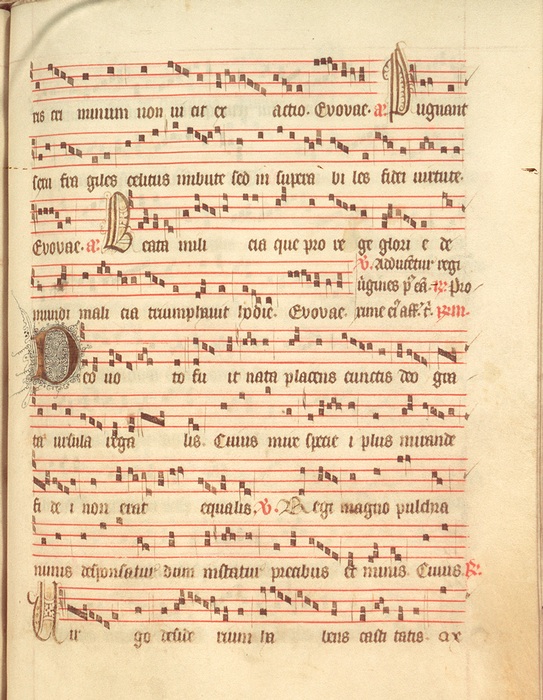 tis cri minum non ui cit ex actio. Evovae. a. Pugnant
sem fra giles celitus imbute sed in supera bi les fidei uirtute.
Evovae. a. Beata mili cia que pro re ge glori e de
V. Adducetur regi
uirgines
mundi mali cia triumphauit hodie. Evovae.
Deo uo to fu it nata placens cunctis deo gra
ta ursula rega lis. Cuius mire specie i plius mirande
fi de i non erat equalis. V. Regi magno pulchra
nimis desponsatur dum instatur precibus et minis. Cuius R.
Uir go deside rium ha bens casti tatis. ar